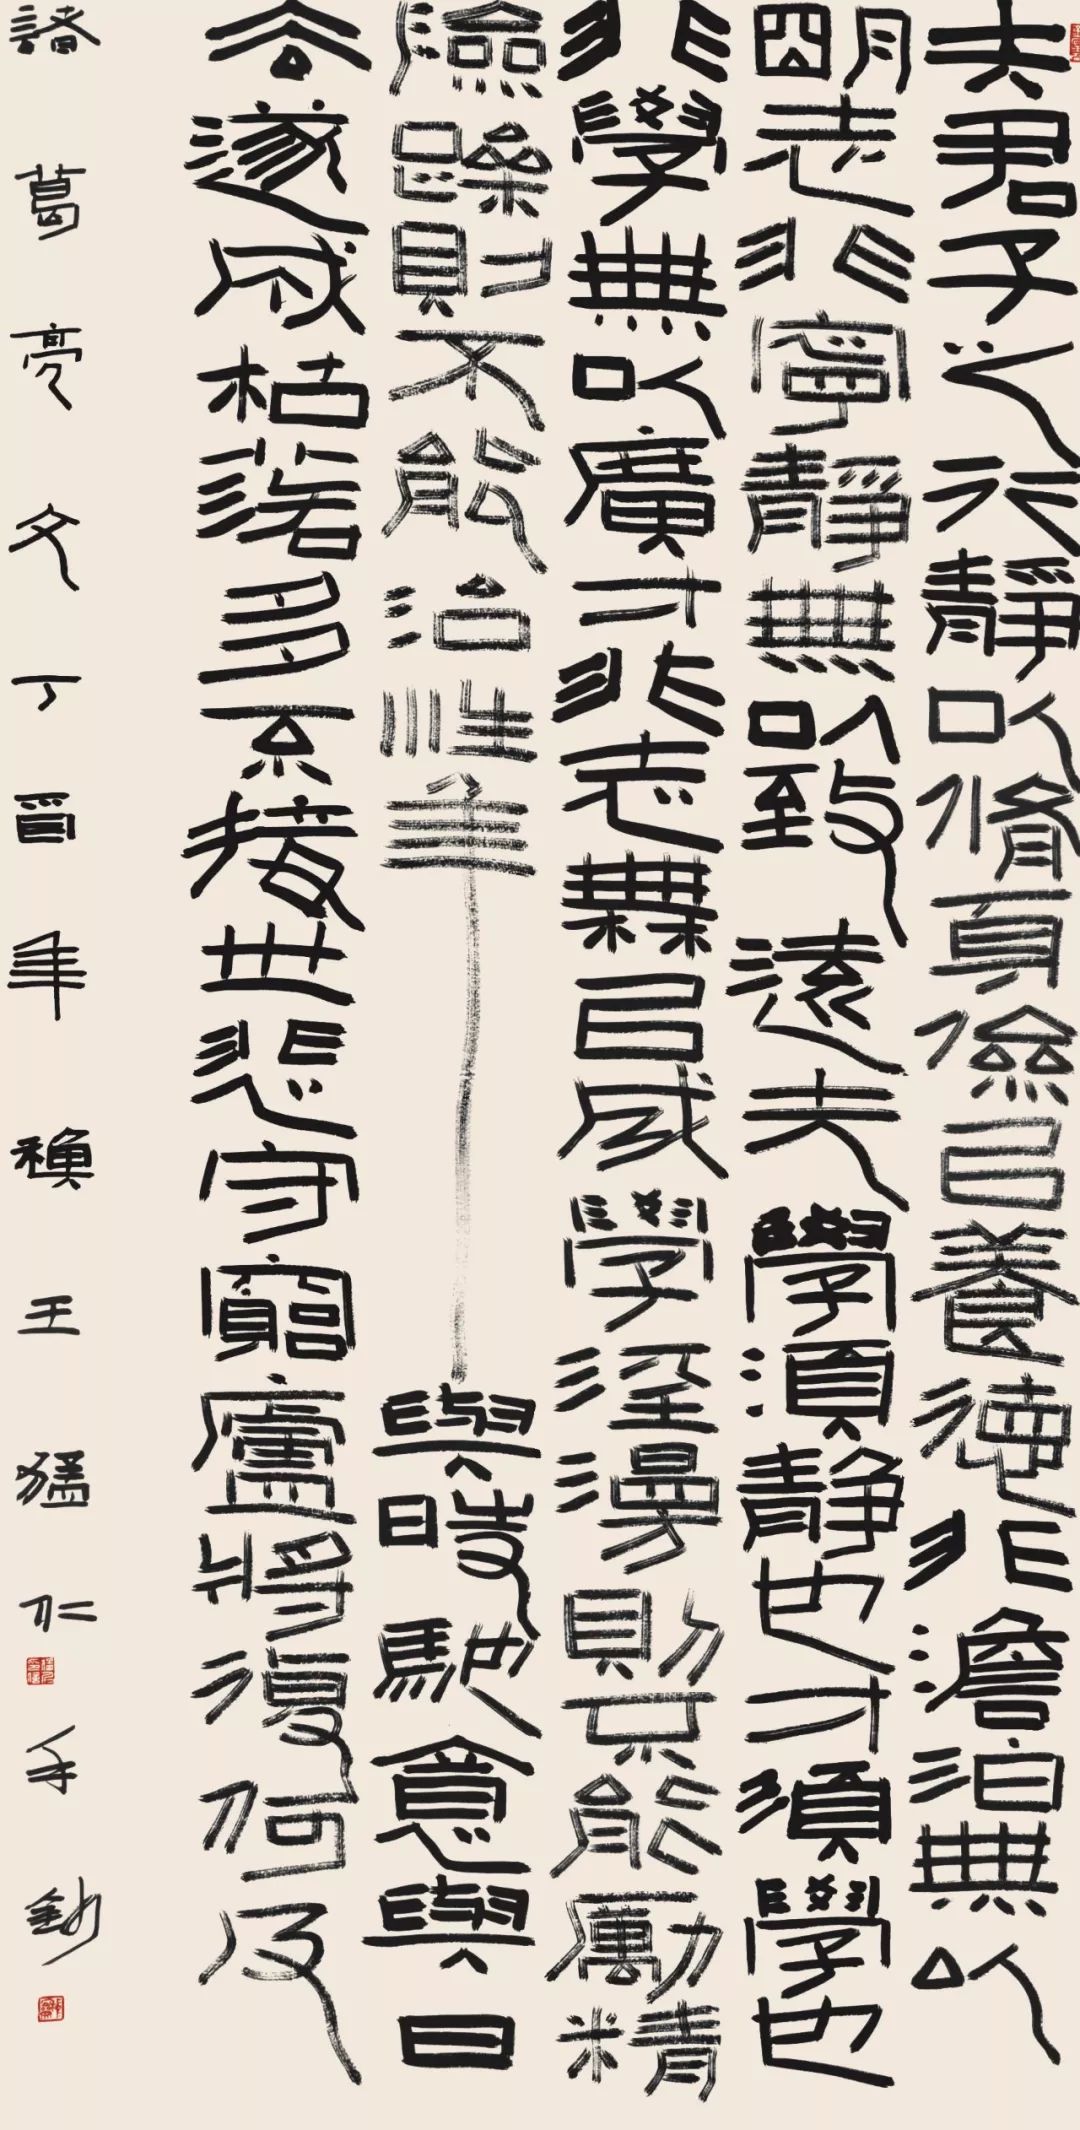 夫君子之行靜以脩身儉㠯養德非澹泊無以
朙志非寧靜無以致遠夫學須靜也才須學也
非學無以廣才非志無㠯成學淫漫則不能勵精
險躁則不能治性年與時馳意與日
去遂成枯落多不接世悲守窮廬將復何及
諸葛亮文丁酉年穐王猛仁手鈔